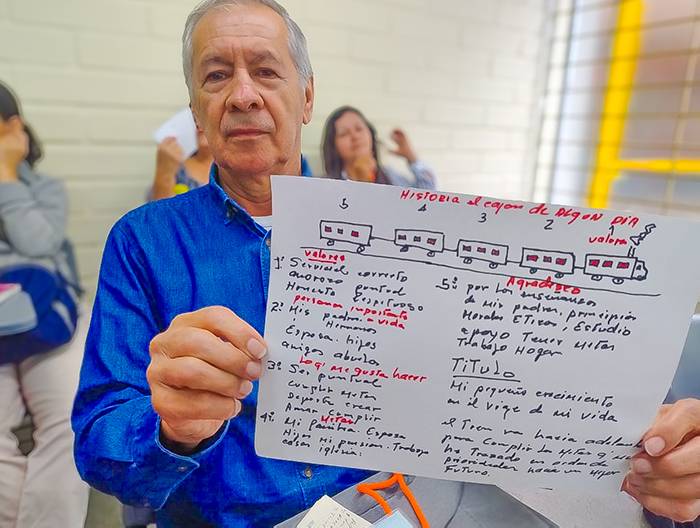 HISTORIA el cajon de ALGUN DIA
5 4 3 2 1
valores
valores
1º Servicial correcto
amoroso puntual
Honesto Respetuoso
persona importante
2º Mis padres a vida
Hermanos
Esposa. hijos
amigos abuela
Lo q' me gusta hacer
3º Ser puntual
cumplir Metas
Deporte crear
Amar Cumplir
Metas
4º Mi Esposa
Hijos Mi pension. Trabajo
casa iglesia:
Agradezco
5º por las enseñanzas
de Mis padres, principios
Morales Eticos, Estudio
apoyo Tener Metas
Trabajo Hogar
TiTULO
Mi pequeño crecimiento
en el viaje de mi vida
el Tren va hacia adelante
para Cumplir las Metas q'
ha Trazado en orden de
prioridades hacer un Mejor
Futuro.